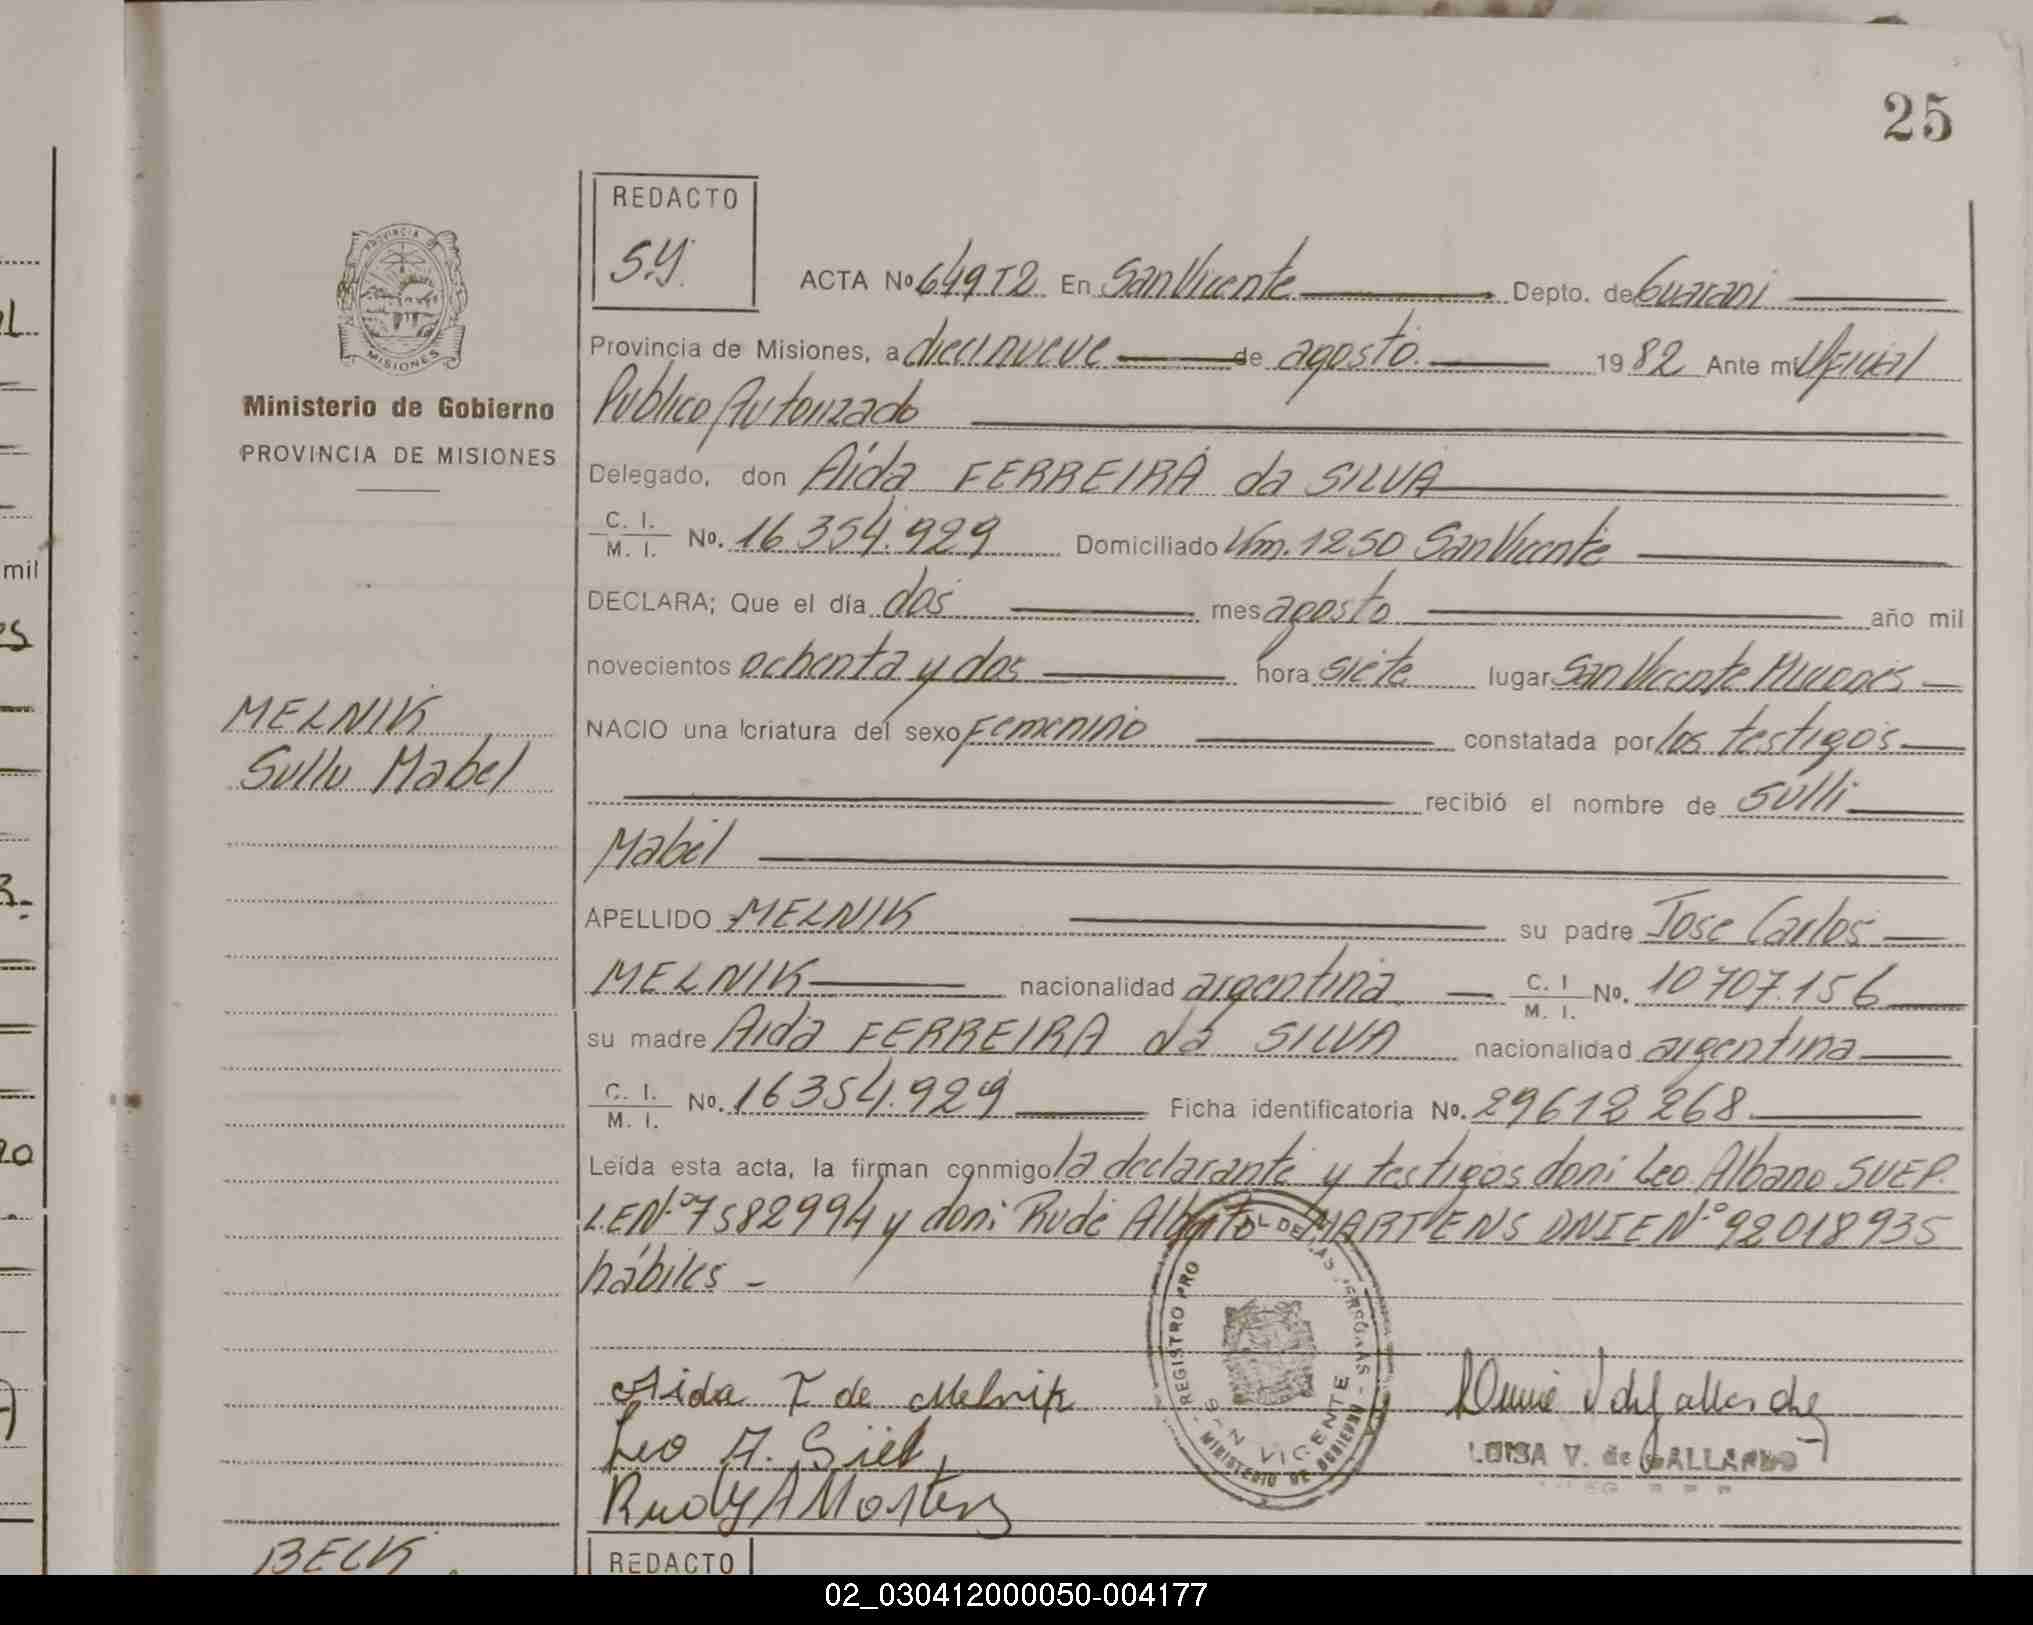 25
REDACTO
S.Y.
PROVINCIA DE
MISIONES
Ministerio de Gobierno
PROVINCIA DE MISIONES
MELNIK
Sully Mabel
ACTA No 649 T2 En San Vicente Depto. de Guarani
Provincia de Misiones, a diecinueve de agosto. 1982 Ante mi Oficial
Publico Autorizado
Delegado, don Aída FERREIRA da SILVA
C. I. / M. I. No. 16 354.929 Domiciliado Km. 1250 San Vicente
DECLARA; Que el día dos mes agosto año mil
novecientos ochenta y dos hora siete lugar San Vicente Misiones
NACIO una criatura del sexo Femenino constatada por los testigos
recibió el nombre de Sulli
Mabel
APELLIDO MELNIK su padre Jose Carlos
MELNIK nacionalidad argentina C. I / M. I. No. 10 707.156
su madre Aida FERREIRA da SILVA nacionalidad argentina
C. I. / M. I. No. 16354.929 Ficha identificatoria No. 29612268
Leída esta acta, la firman conmigo la declarante y testigos don: Leo Albano SUEP.
L.E.Nº 7582994 y don: Rude Alberto MARTENS DNIE Nº 92018935
hábiles -
Aida F de Melnik
Leo A. Siel
Rudy A Martens
REGISTRO PRO AL DE LAS PERSONAS
SAN VICENTE
MINISTERIO DE GOBIERNO
LUISA V. de GALLARDO
BECK
REDACTO
mil
02_030412000050-004177